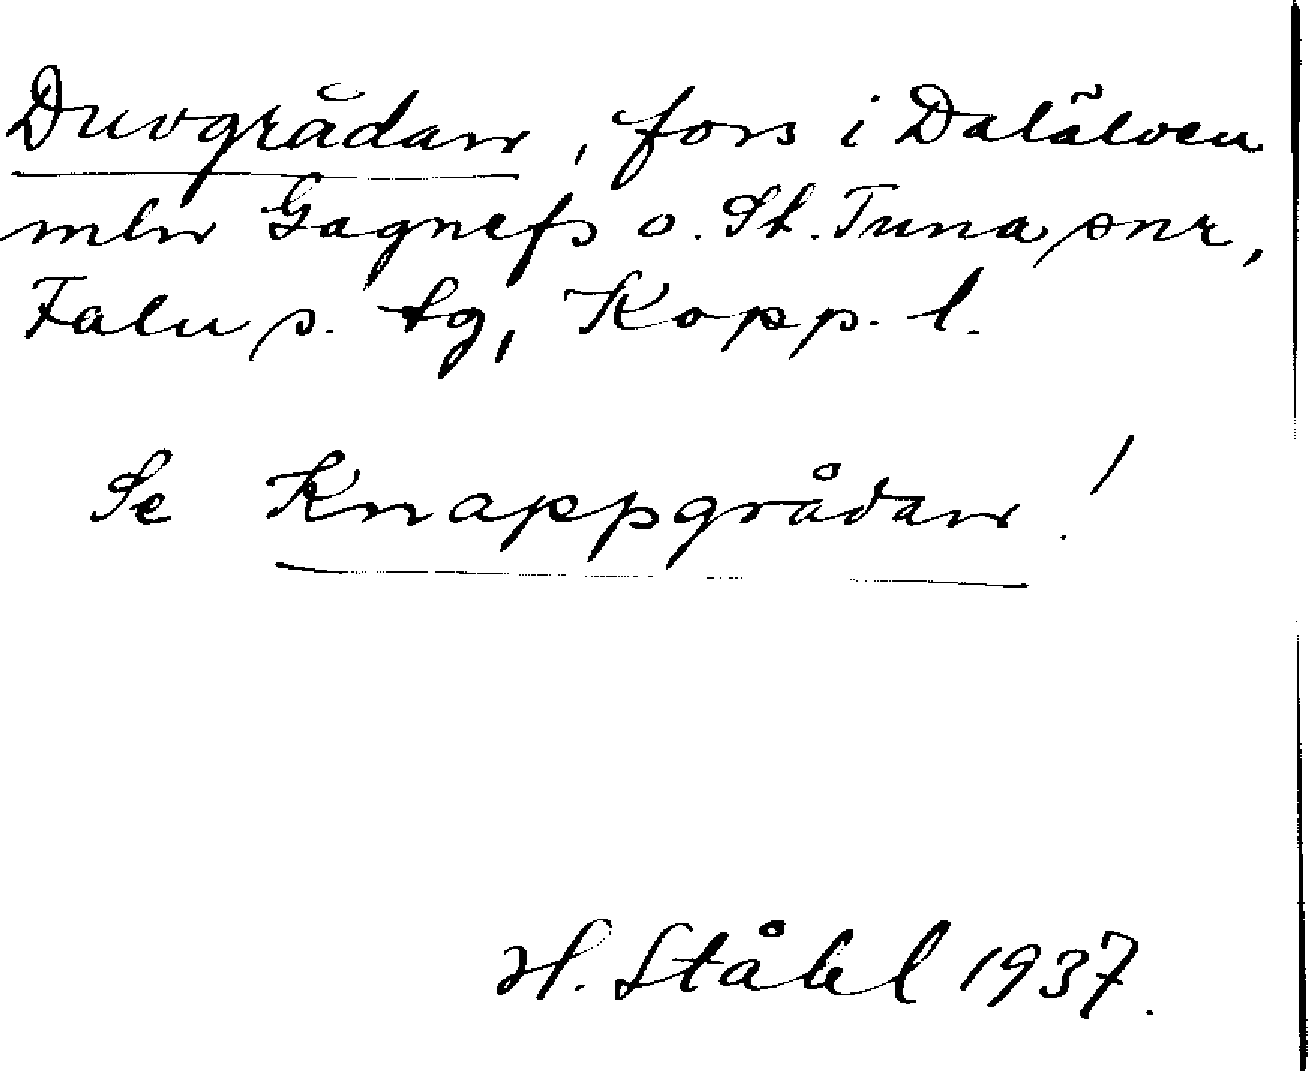 Duvgrådarn, fors i Dalälven
mln Gagnefs o. St. Tuna snr,
Falu s. tg, Kopp. l.
Se Knappgrådarn!
H. Ståhl 1937.